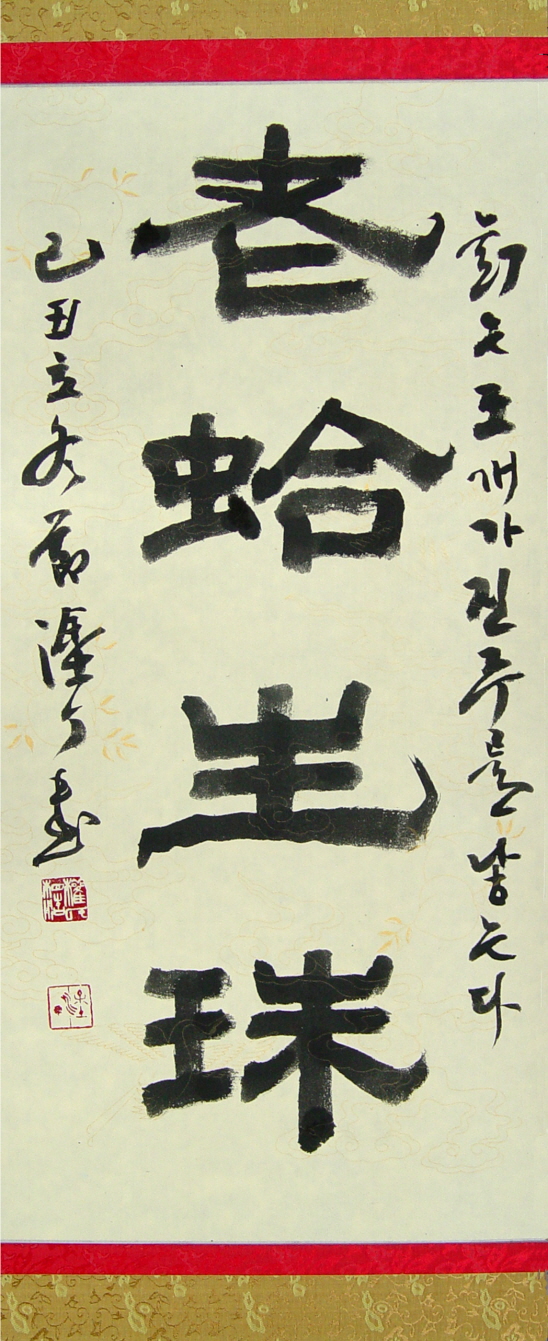 늙은조개가진주를낳는다
老蛤生珠
己丑立冬節 書